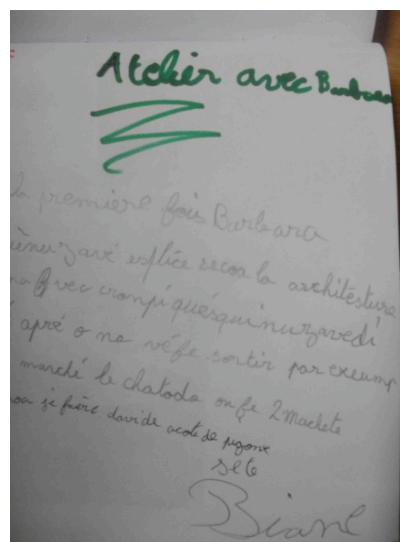 Atelier avec Barbara
la première fois Barbara
zavé esplice secoa la architesture
avec cronpi quésquinuzavedi
apré o na véfe sortir par exeump
marché le chatodo on fe 2 Machete
je faire davide acote de pigonx
sete
Biane